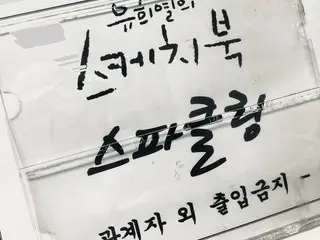 유희열의
스케치북
스파클링
관계자 외 출입금지-